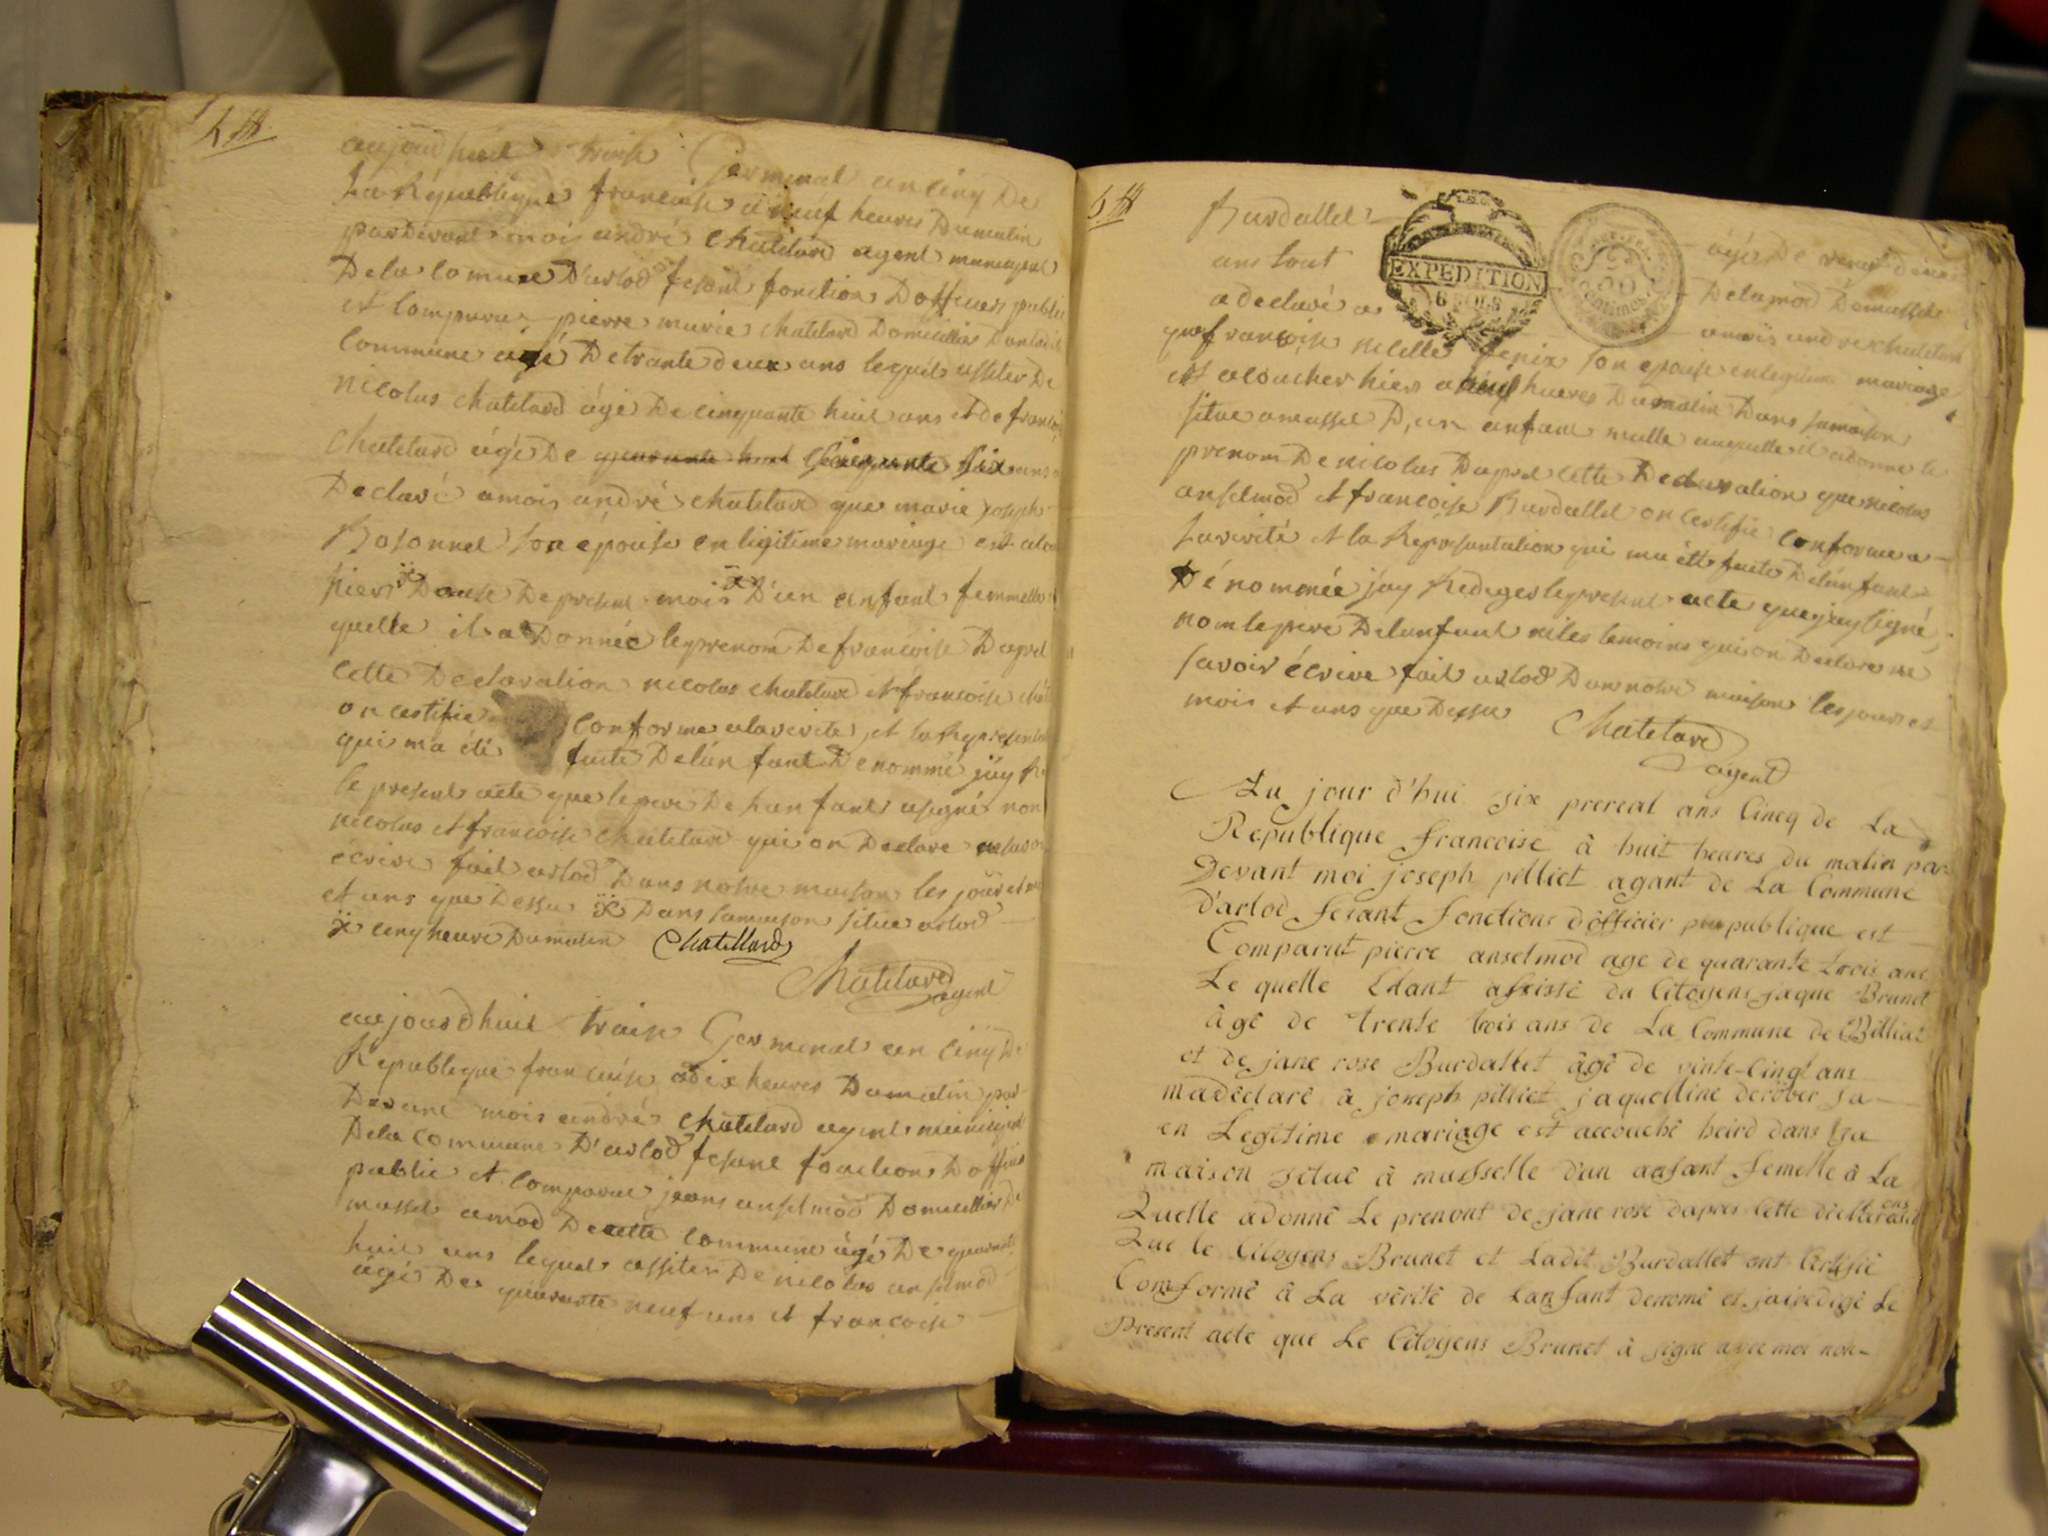 aujourdhuit traise Germinal an cinq De
La Republique francaise a neuf heures Dumatin
pardevant mois andré Chatelard agent municipal
Dela Comune D'arlod fesant fonction Dofficier public
et Comparu pierre marie Chatelard Domicillier Dans ladite
Commune agé Detrante deux ans lequel assiter De
nicolas Chatelard àgé De cinquante huit ans et de francoise
Chatelard àgé De quarante huit Cinquante six ans a
Declaré a mois andré Chatelard que marie joseph
son épouse en ligitime mariage est
hier Douse De present mois D'un enfant femmelle
quelle il a Donnée le prenom De francoise Daprel
Cette Declaration nicolas Chatelard et francoise
on certifie conforme alaverite et la Represent
qui ma été faite Delénfant Denommé jáy
le present acte que le pere De lanfant asigné non
nicolas et francoise Chatelard qui on Declare
écrire fait arlod Dans notre maison les jour et
et ans que Dessu Dans samaison situe arlod
cinq heure Dumatin Chatellard
Chatelard
agent
aujourdhuit traise Germinal an cinq De
Republique francaise a dix heures Dumatin par
Devant mois andré Chatelard agent municipal
Dela Commune D'arlod fesant fonction Dofficier
public et Comparut jeans anselmod Domicillier De
mussel amod De cette Commune àgé De quarante
huit ans lequel assiter De nicolas anselmod
àgé De quarante neuf ans et francoise
Burdallet àgé De
ans tout Delamod Demussel
EXPEDITION
a declaré a mois andre Chatelard
que francoise nicolle son epouse en legitime mariage
est acoucher hier a huit hueres Dumatin Dans samaison
situe amussel D,un enfant malle auquelle il adonne le
prenom De nicolas Daprel Cette Declaration que nicolas
anselmod et francoise Burdallet on certifie conforme a
laverité et la Répresentation qui ma été faite Delénfant
Dénommée jáy Rediger le present acte que jay signé
nom le pere Delanfant ni les temoins qui on Declare ne
savoir écrire fait arlod Dans notre maison les jour et
mois et ans que Dessu Chatelard
agent
Au jour d'hui six prereal ans Cincq de La
Republique francoise à huit heures du matin par
Devant moi joseph pilliet agant de La Commune
d'arlod fesant fonctions d'officier publique est
Comparut pierre anselmod age de quarante trois ans
Le quelle Etant assiste du Citoyens jaque Brunet
àgê de trente trois ans de La Commune de Billiat
et de jane rose Burdallet âgê de vinte-Cinqt ans
madéclarê à joseph pilliet jaquelline derober sa
en Legitime mariage est accouchê heird dans sa
maison situê à musselle d'un anfant femelle à La
Quelle adonnê Le prenont de jane rose dapres Cette declaration
Que le Citoyens Brunet et Ladit Burdallet ont Certifiê
Comformê â La vêritê de Lanfant denomê et jairedigê Le
Present acte que Le Citoyens Brunet â signe avec moi non-